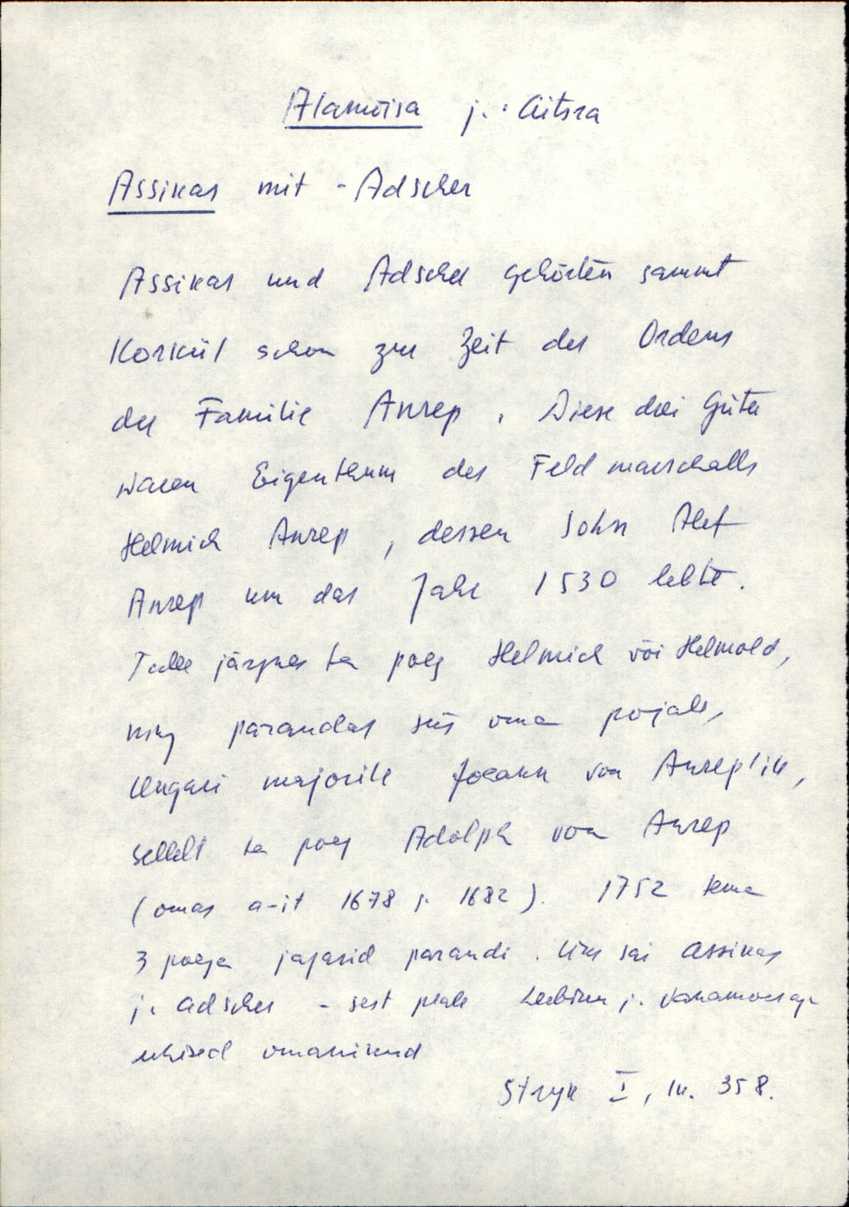 Alamõisa j. Aitsra
Assikas mit - Adscher
Assikas und Adscher gehörten sammt
Korküll schon zur Zeit des Ordens
der Familie Anrep. Diese drei Güter
waren Eigenthum des Feldmarschalls
Helmich Anrep, dessen Sohn Alef
Anrep um das Jahr 1530 lebte.
Talle järgnes ta poeg Helmich või Helmold,
ning parandas siis oma pojale,
Ungari majorile Joeann von Anrep'ile,
sellelt ta poeg Adolph von Anrep
(omas a-it 1678 j. 1682). 1752 tema
3 poega jagasid parandi. Üks sai Assikas
j. Adscher - sest peale j. Vanamoisaga
ühised omanikud
Stryk I, lk. 358.